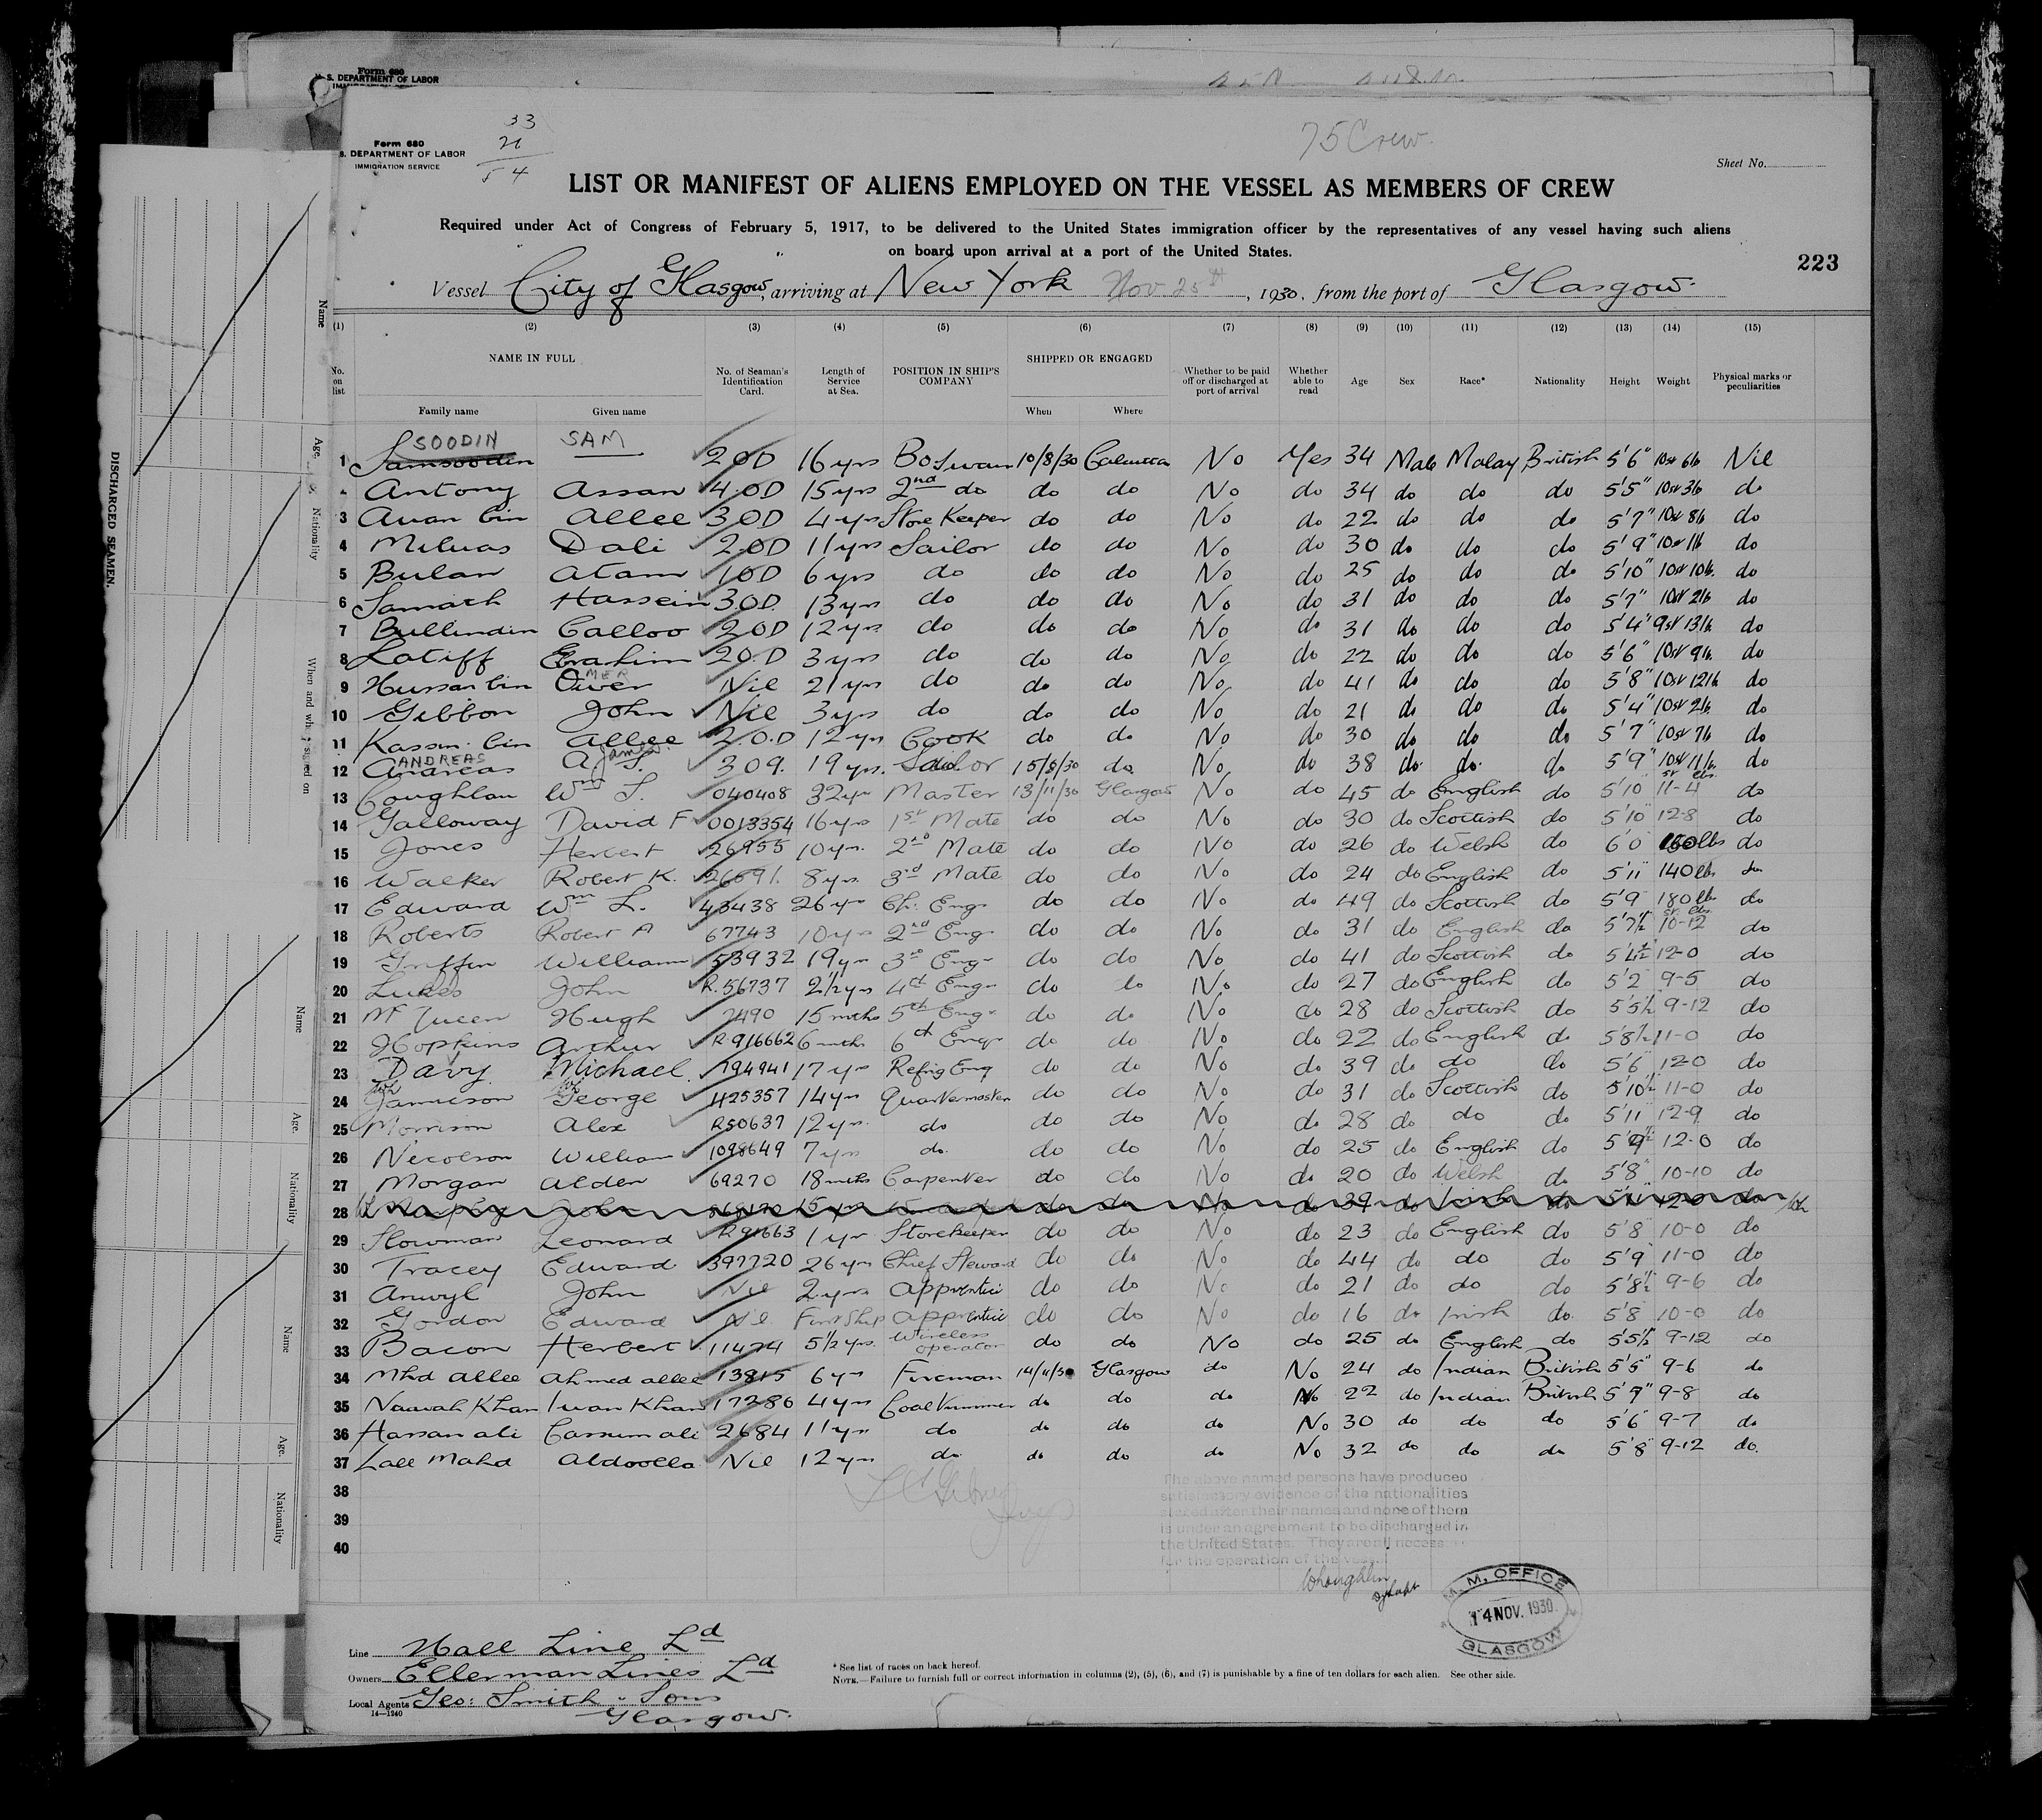 Form 680
S. DEPARTMENT OF LABOR
33
21
54
75 Crew.
Form 680
S. DEPARTMENT OF LABOR
IMMIGRATION SERVICE
Sheet No.
LIST OR MANIFEST OF ALIENS EMPLOYED ON THE VESSEL AS MEMBERS OF CREW
Required under Act of Congress of February 5, 1917, to be delivered to the United States immigration officer by the representatives of any vessel having such aliens
on board upon arrival at a port of the United States.
223
Vessel City of Glasgow, arriving at New York Nov. 25th, 1930, from the port of Glasgow.
(1) (2) (3) (4) (5) (6) (7) (8) (9) (10) (11) (12) (13) (14) (15)
No. on list NAME IN FULL No. of Seaman's Identification Card. Length of Service at Sea. POSITION IN SHIP'S COMPANY SHIPPED OR ENGAGED Whether to be paid off or discharged at port of arrival Whether able to read Age Sex Race* Nationality Height Weight Physical marks or peculiarities
Family name Given name When Where
SOODIN SAM
1 Samsooden 2 OD 16 yrs Boswan 10/8/30 Calcutta No Yes 34 Male Malay British 5'6" 10st 6lb Nil
Antony Assan 4.OD 15 yrs 2nd do do do No do 34 do do do 5'5" 10st 3lb do
3 Avan bin Allee 3 OD 4 yrs Store Keeper do do No do 22 do do do 5'7" 10st 8lb do
4 Miluas Dali 2.OD 11 yrs Sailor do do No do 30 do do do 5'9" 10st 1lb do
5 Bulan Atam 1 OD 6 yrs do do do No do 25 do do do 5'10" 10st 10lb. do
6 Samath Hassein 3 OD. 13 yrs do do do No do 31 do do do 5'7" 10st 2lb do
7 Bullendin Calloo 2 OD 12 yrs do do do No do 31 do do do 5'4" 9st 13lb do
8 Latiff Ebrahim 2 O.D 3 yrs do do do No do 22 do do do 5'6" 10st 9lb do
MER
9 Hussan bin Owen Nil 21 yrs do do do No do 41 do do do 5'8" 10st 12lb do
10 Gibbon John Nil 3 yrs do do do No do 21 do do do 5'4" 10st 2lb do
11 Kassim bin Allee 2.O.D 12 yrs Cook do do No do 30 do do do 5'7" 10st 7lb do
ANDREAS James
12 Andreas A. S. 309. 19 yrs. Sailor 15/8/30 do No do 38 do do do 5'9" 10st 11lb do
13 Coughlan Wm S. 040408 32 yrs Master 13/11/30 Glasgow No do 45 do English do 5'10 11-4 do
14 Galloway David F 0013354 16 yrs 1st Mate do do No do 30 do Scottish do 5'10 12-8 do
15 Jones Herbert 26955 10 yrs. 2nd Mate do do No do 26 do Welsh do 6'0 150 lbs do
16 Walker Robert K. 26591. 8 yrs. 3rd Mate do do No do 24 do English do 5'11 140 lbs do
17 Edward Wm L. 43438 26 yrs Ch. Eng. do do No do 49 do Scottish do 5'9 180 lbs do
18 Roberts Robert A 67743 10 yrs 2nd Eng. do do No do 31 do English do 5'7½ 10-12 do
19 Griffin William 53932 19 yrs 3rd Eng. do do No do 41 do Scottish do 5'4½ 12-0 do
20 Lukes John R.56737 2½ yrs 4th Eng. do do No do 27 do English do 5'2 9-5 do
21 McQueen Hugh 2490 15 mths 5th Eng. do do No do 28 do Scottish do 5'5½ 9-12 do
22 Hopkins Arthur R.916662 6 mths 6th Engr do do No do 22 do English do 5'8½ 11-0 do
23 Davy Michael. 794941 17 yrs Refrig Eng do do No do 39 do do do 5'6 12-0 do
24 Jamieson George 425357 14 yrs Quartermaster do do No do 31 do Scottish do 5'10½ 11-0 do
25 Morrison Alex R50637 12 yrs. do do do No do 28 do do do 5'11 12-9 do
26 Nicolson William 1098649 7 yrs do. do do No do 25 do English do 5'9½ 12-0 do
27 Morgan Alden 69270 18 mths Carpenter do do No do 20 do Welsh do 5'8 10-10 do
28 John 15 yrs do do No do 39 do Irish do 12-0 do
29 Slowman Leonard R 91663 1 yr Storekeeper do do No do 23 do English do 5'8 10-0 do
30 Tracey Edward 397720 26 yrs Chief Steward do do No do 44 do do do 5'9 11-0 do
31 Anwyl John Nil 2 yrs Apprentice do do No do 21 do do do 5'8½ 9-6 do
32 Gordon Edward Nil First Ship Apprentice do do No do 16 do Irish do. 5'8 10-0 do
33 Bacon Herbert 11474 5½ yrs. Wireless operator do do No do 25 do English do 5'5½ 9-12 do
34 Mhd Allee Ahmed Allee 13815 6 yrs Fireman 14/11/30 Glasgow do No 24 do Indian British 5'5" 9-6 do
35 Nawah Khan Iwan Khan 17286 4 yrs Coal Trimmer do do do No 22 do Indian British 5'7" 9-8 do
36 Hassan Ali Cassim Ali 2684 11 yrs do do do do No 30 do do do 5'6 9-7 do
37 Lall Mahd Aldoolla Nil 12 yrs do do do do No 32 do do do 5'8 9-12 do.
38
39
40
The above named persons have produced
satisfactory evidence of the nationalities
stated after their names and none of them
is under an agreement to be discharged in
the United States. They are all necess
for the operation of the vessel
M. M. OFFICE
14 NOV. 1930
GLASGOW
Line Hall Line Ld
Owners Ellerman Lines Ld
Local Agents Geo: Smith & Sons
Glasgow.
14—1240
* See list of races on back hereof.
NOTE.—Failure to furnish full or correct information in columns (2), (5), (6), and (7) is punishable by a fine of ten dollars for each alien. See other side.
DISCHARGED SEAMEN.
Name
Age.
Nationality
When and
signed on
Name
Age.
Nationality
Name
Age.
Nationality